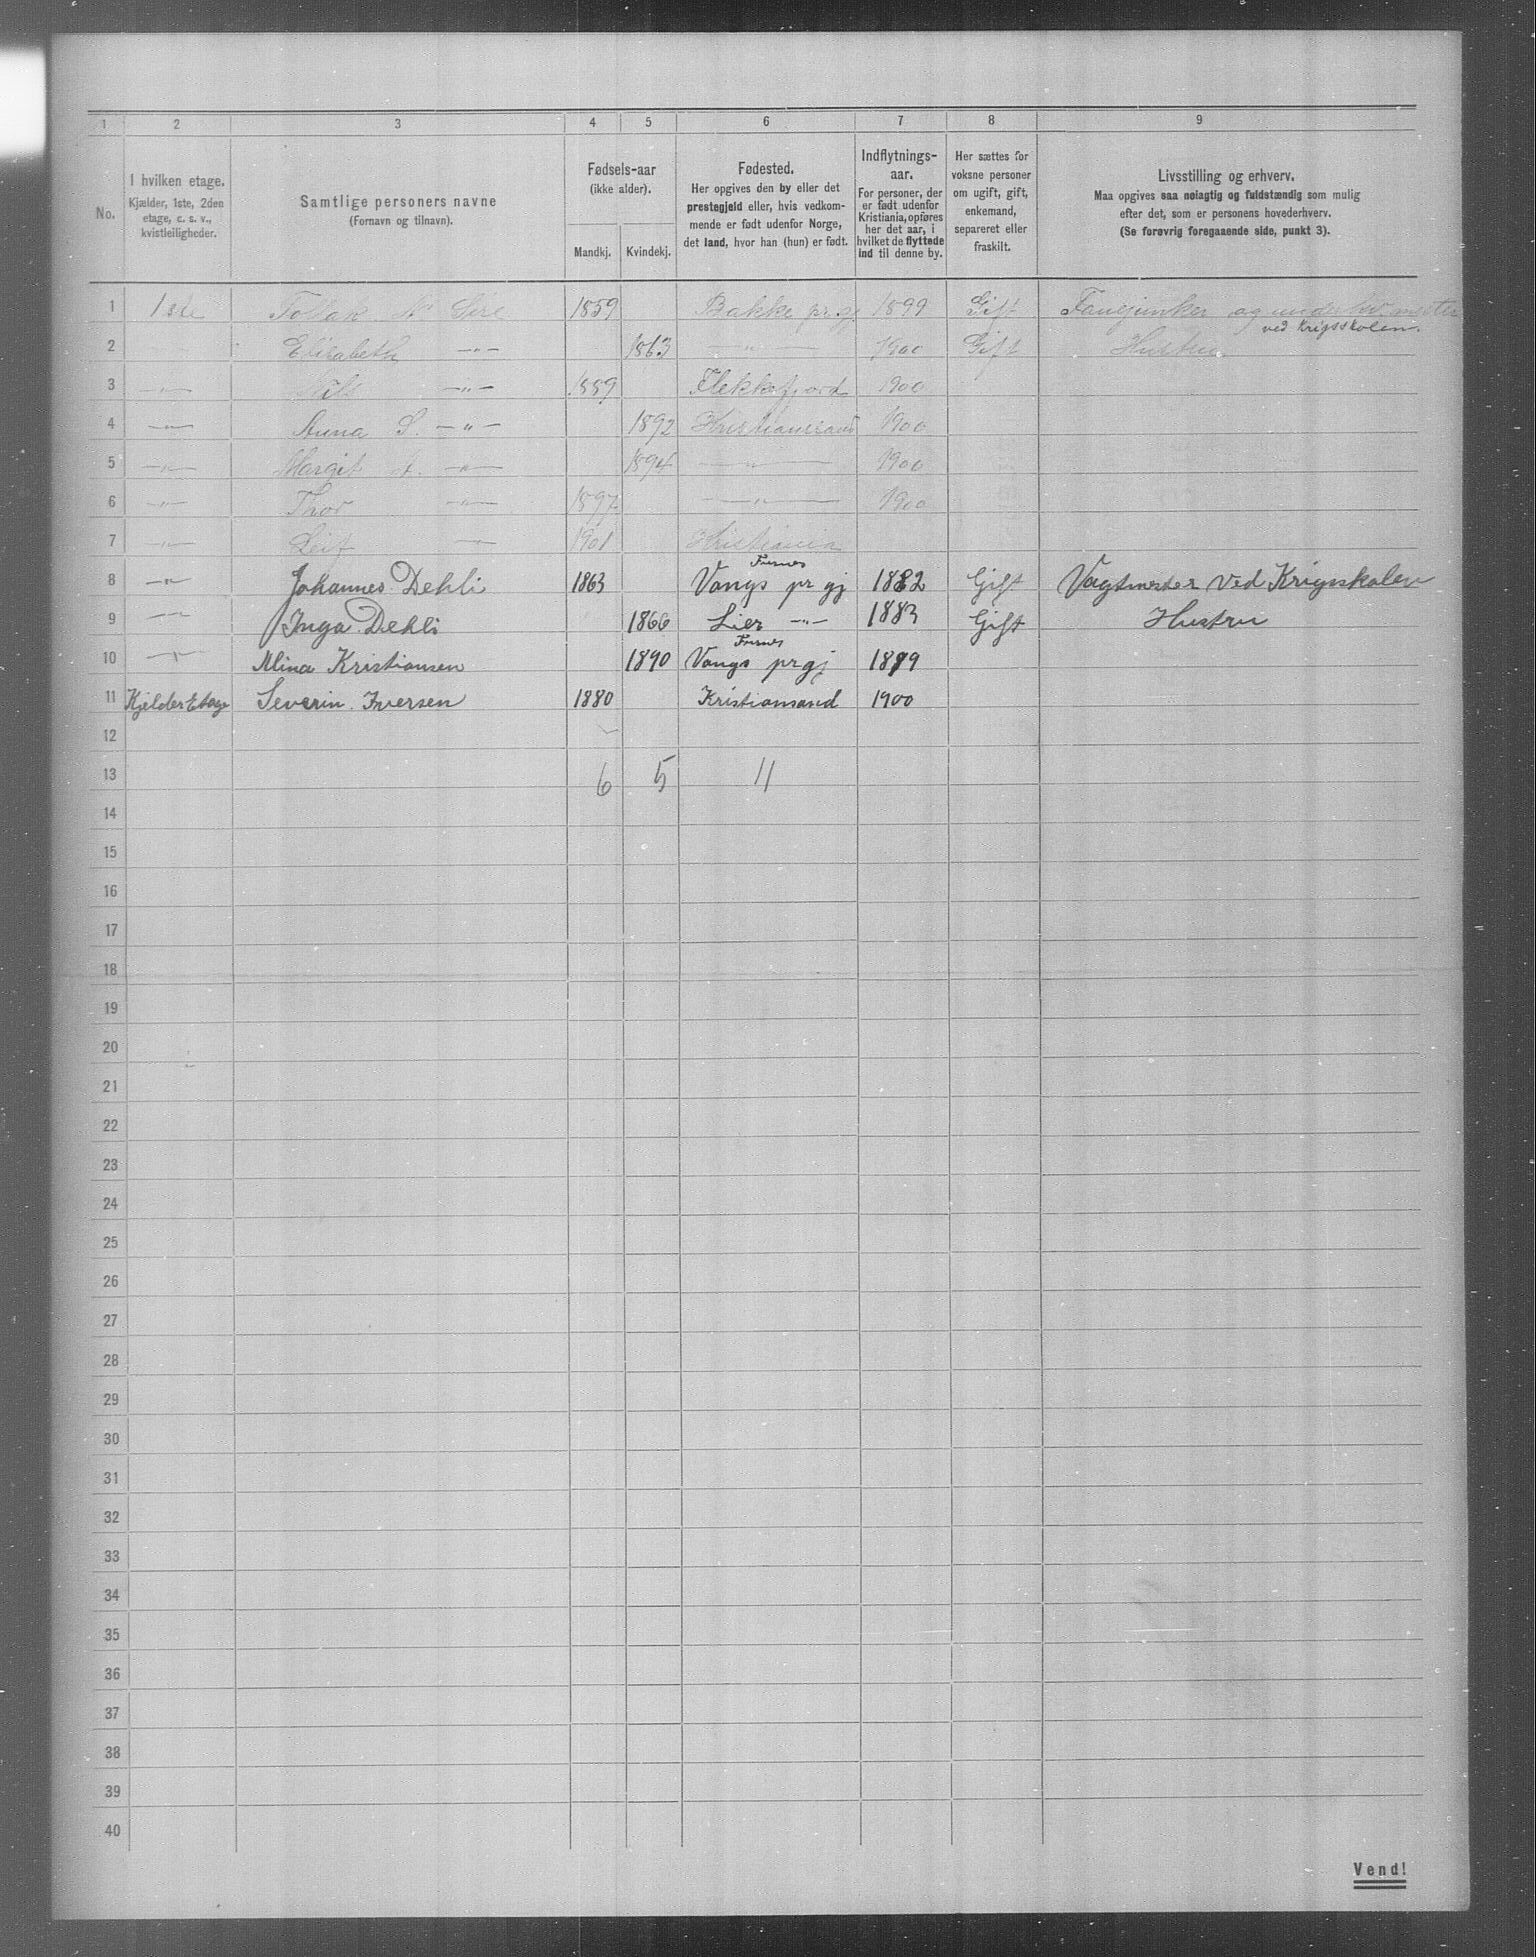 1 2 3 4 5 6 7 8 9
No.
I hvilken etage.
Kjælder, 1ste, 2den
etage, o. s. v.,
kvistleiligheder.
Samtlige personers navne
(Fornavn og tilnavn).
Fødsels-aar
(ikke alder).
Mandkj. Kvindekj.
Fødested.
Her opgives den by eller det
prestegjeld eller, hvis vedkom-
mende er født udenfor Norge,
det land, hvor han (hun) er født.
Indflytnings-
aar.
For personer, der
er født udenfor
Kristiania, opføres
her det aar, i
hvilket de flyttede
ind til denne by.
Her sættes for
voksne personer
om ugift, gift,
enkemand,
separeret eller
fraskilt.
Livsstilling og erhverv.
Maa opgives saa nøiagtig og fuldstændig som mulig
efter det, som er personens hovederhverv.
(Se forøvrig foregaaende side, punkt 3).
1 1ste Tollak N. Sire 1859 Bakke pr.gj. 1899 Gift Fanejunker og
ved Krigsskolen.
2 Elisabeth —"— 1863 —"— 1900 Gift Hustru
3 —"— Nils —"— 1889 Flekkefjord 1900
4 —"— Anna S. —"— 1892 Kristianssand 1900
5 —"— Margit —"— 1894 —"— 1900
6 —"— Thor —"— 1897 —"— 1900
7 —"— Leif —"— 1901 Kristiania
Furnes
8 —"— Johannes Dehli 1863 Vangs pr gj 1882 Gift Vagtmester ved Krigsskolen
9 —"— Inga Dehli 1866 Lier —"— 1883 Gift Hustru
Furnes
10 —"— Alina Kristiansen 1890 Vangs prgj 1899
11 Kjelder Etage Severin Iversen 1880 Kristiansand 1900
12
13 6 5 11
14
15
16
17
18
19
20
21
22
23
24
25
26
27
28
29
30
31
32
33
34
35
36
37
38
39
40
Vend!